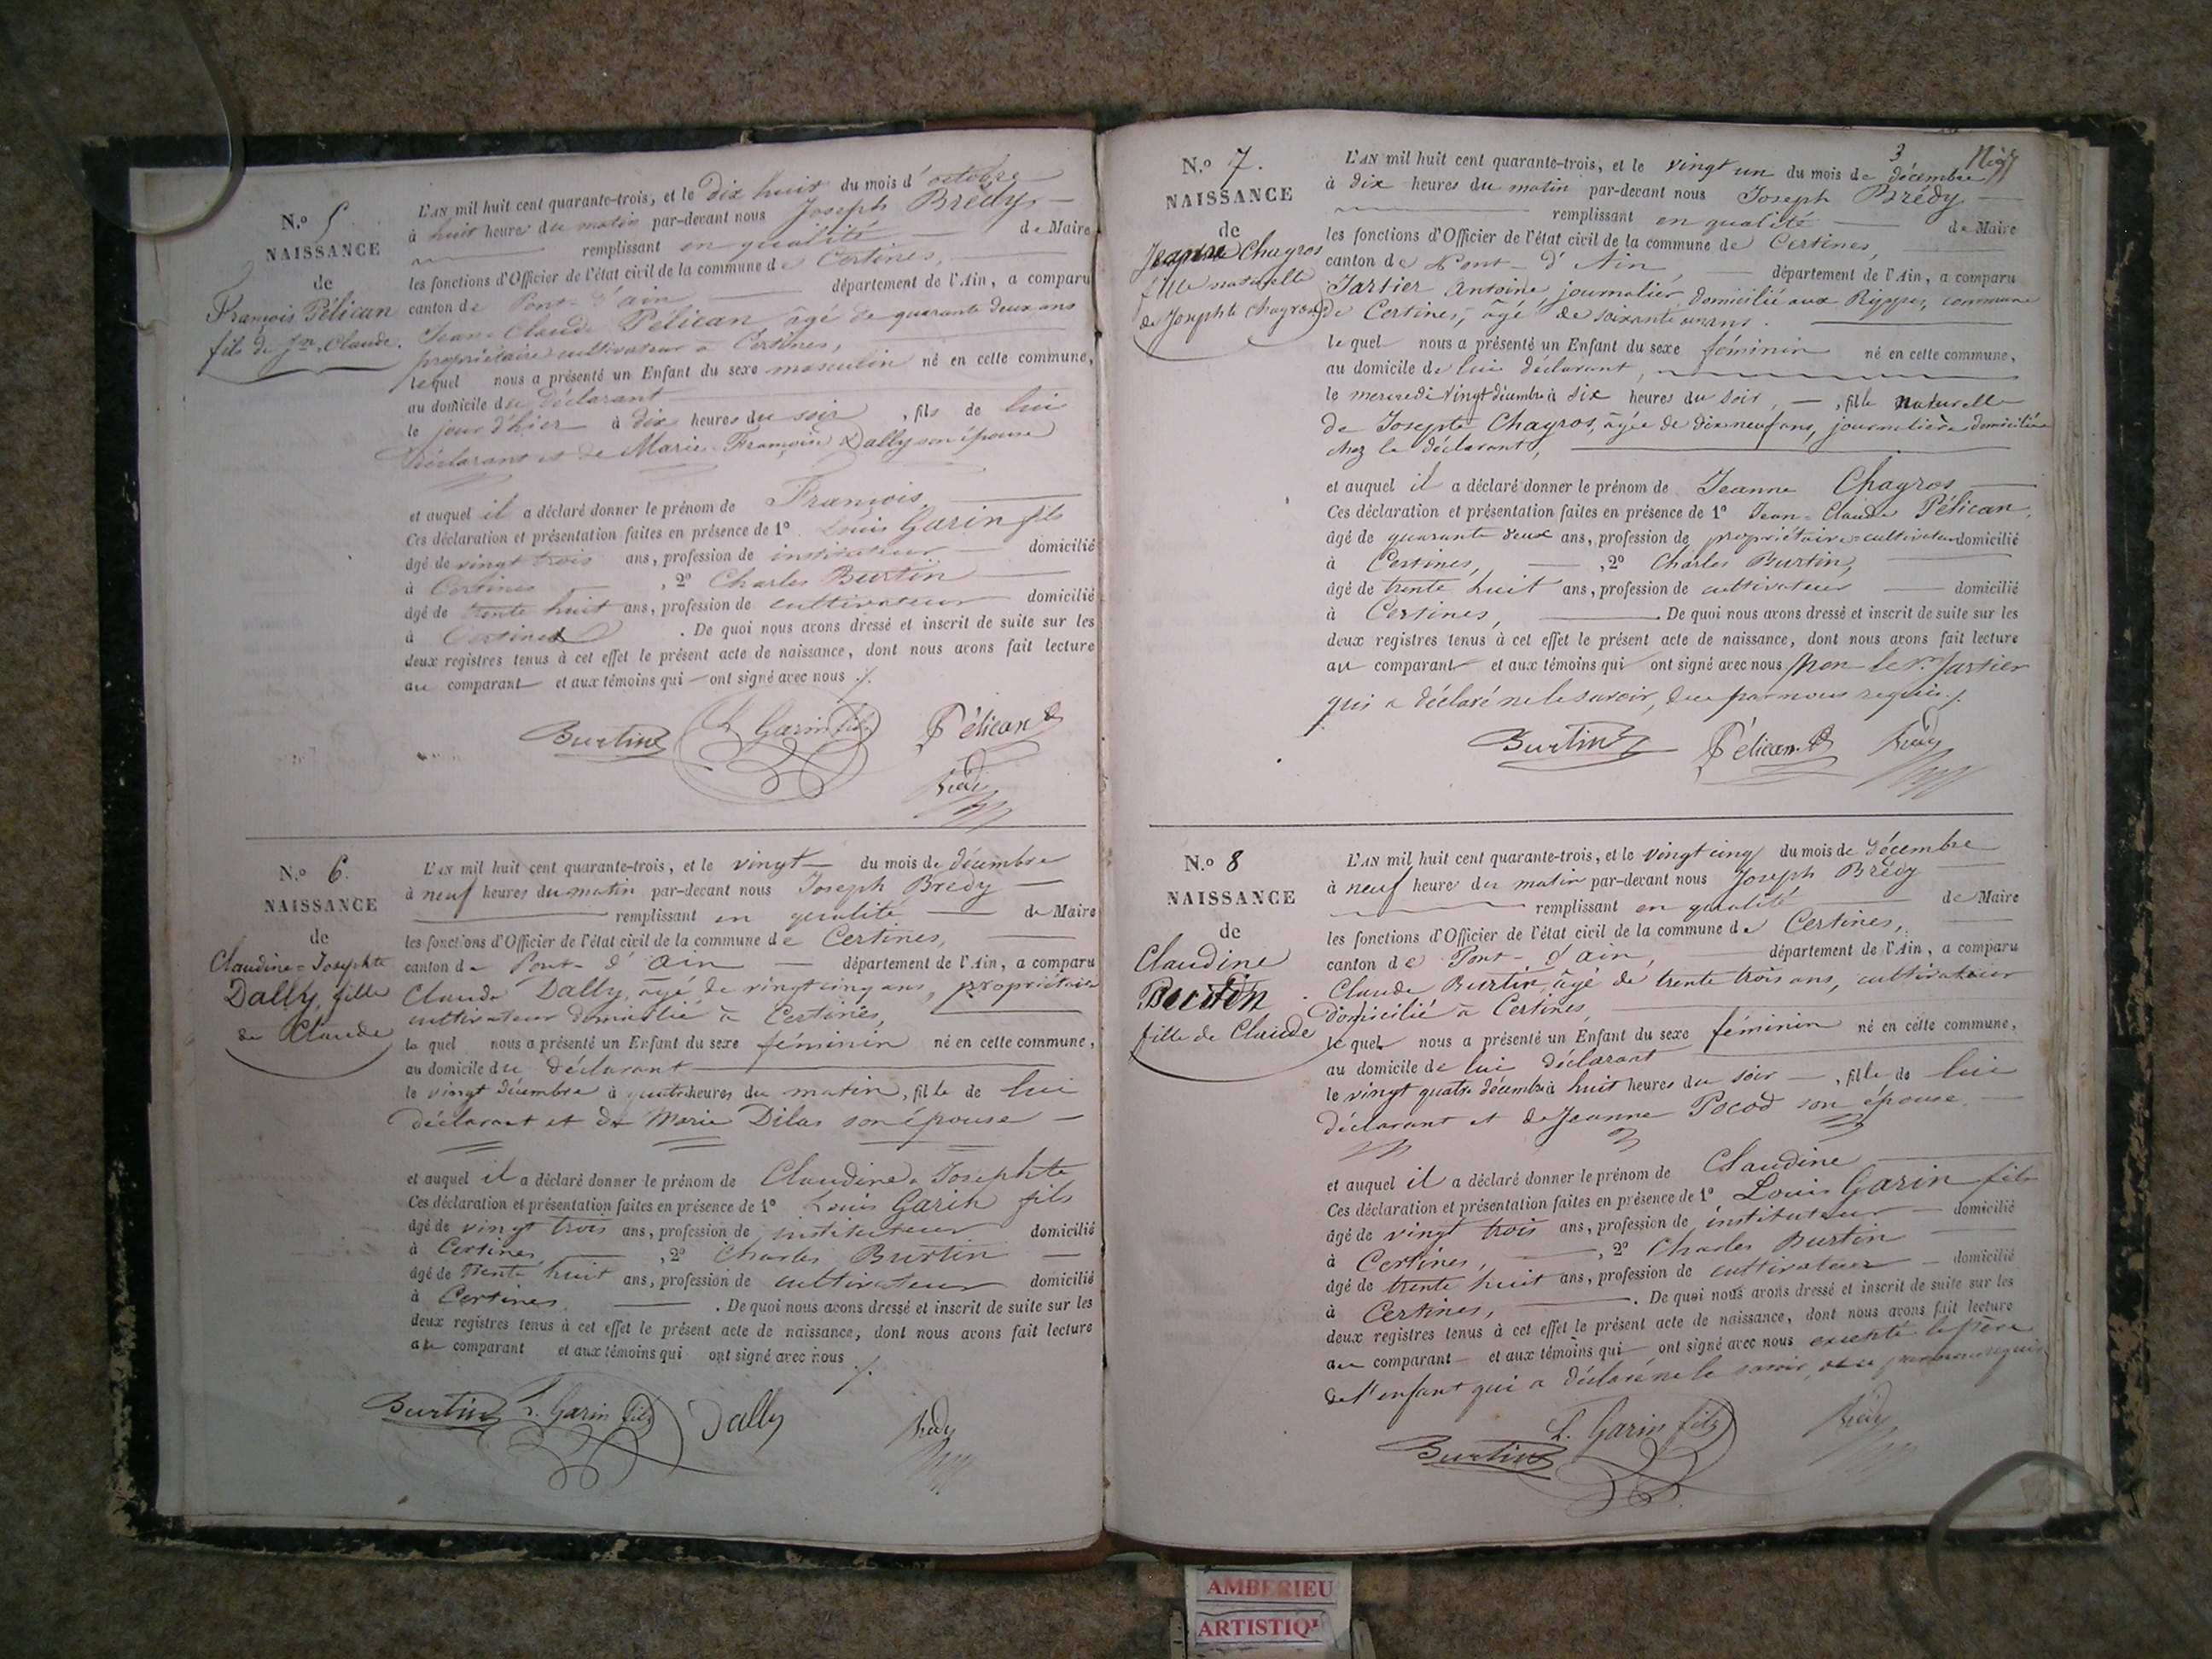 N.o 5
NAISSANCE
de
François Pélican
fils de Jn Claude.
L'AN mil huit cent quarante-trois, et le dix huit du mois d'octobre
à huit heures du matin par-devant nous Joseph Brédy
remplissant en qualité de Maire
les fonctions d'Officier de l'état civil de la commune de Certines,
canton de Pont-d'ain département de l'Ain, a comparu
Jean-Claude Pélican, âgé de quarante deux ans
propriétaire cultivateur à Certines,
lequel nous a présenté un Enfant du sexe masculin né en cette commune,
au domicile du déclarant
le jour d'hier à dix heures du soir, fils de lui
déclarant et de Marie-Françoise Dally son épouse
et auquel il a déclaré donner le prénom de François,
Ces déclaration et présentation faites en présence de 1o Louis Garin fils
âgé de vingt trois ans, profession de instituteur domicilié
à Certines, 2o Charles Burtin
âgé de trente huit ans, profession de cultivateur domicilié
à Certines. De quoi nous avons dressé et inscrit de suite sur les
deux registres tenus à cet effet le présent acte de naissance, dont nous avons fait lecture
au comparant et aux témoins qui ont signé avec nous ./.
Burtin L. Garin fils Pélican
Brédy
N.o 6.
NAISSANCE
de
Claudine-Josephte
Dally, fille
de Claude
L'AN mil huit cent quarante-trois, et le vingt du mois de décembre
à neuf heures du matin par-devant nous Joseph Brédy
remplissant en qualité de Maire
les fonctions d'Officier de l'état civil de la commune de Certines,
canton de Pont-d'ain département de l'Ain, a comparu
Claude Dally, âgé de vingt cinq ans, propriétaire
cultivateur domicilié à Certines,
lequel nous a présenté un Enfant du sexe féminin né en cette commune,
au domicile du déclarant
le vingt décembre à quatre heures du matin, fille de lui
déclarant et de Marie Dilas son épouse
et auquel il a déclaré donner le prénom de Claudine-Josephte
Ces déclaration et présentation faites en présence de 1o Louis Garin fils
âgé de vingt trois ans, profession de instituteur domicilié
à Certines, 2o Charles Burtin
âgé de trente huit ans, profession de cultivateur domicilié
à Certines. De quoi nous avons dressé et inscrit de suite sur les
deux registres tenus à cet effet le présent acte de naissance, dont nous avons fait lecture
au comparant et aux témoins qui ont signé avec nous ./.
Burtin L. Garin fils Dally Brédy
3
N.o 7.
NAISSANCE
de
Jeanne Chagros
fille naturelle
de Josephte Chagros
L'AN mil huit cent quarante-trois, et le vingt un du mois de décembre
à dix heures du matin par-devant nous Joseph Brédy
remplissant en qualité de Maire
les fonctions d'Officier de l'état civil de la commune de Certines,
canton de Pont-d'Ain, département de l'Ain, a comparu
Jartier Antoine, journalier, domicilié aux Rippes, commune
de Certines, âgé de soixante un ans.
lequel nous a présenté un Enfant du sexe féminin né en cette commune,
au domicile de lui déclarant,
le mercredi vingt décembre à six heures du soir, fille naturelle
de Josepte Chagros, âgée de dix neuf ans, journalière domiciliée
chez le déclarant,
et auquel il a déclaré donner le prénom de Jeanne Chagros
Ces déclaration et présentation faites en présence de 1o Jean-Claude Pélican,
âgé de quarante deux ans, profession de propriétaire-cultivateur domicilié
à Certines, 2o Charles Burtin,
âgé de trente huit ans, profession de cultivateur domicilié
à Certines, De quoi nous avons dressé et inscrit de suite sur les
deux registres tenus à cet effet le présent acte de naissance, dont nous avons fait lecture
au comparant et aux témoins qui ont signé avec nous non le sr. Jartier
qui a déclaré ne le savoir, de ce par nous requis ./.
Burtin Pélican Brédy
N.o 8
NAISSANCE
de
Claudine
Burtin
fille de Claude
L'AN mil huit cent quarante-trois, et le vingt cinq du mois de décembre
à neuf heures du matin par-devant nous Joseph Brédy
remplissant en qualité de Maire
les fonctions d'Officier de l'état civil de la commune de Certines,
canton de Pont-d'ain, département de l'Ain, a comparu
Claude Burtin, âgé de trente trois ans, cultivateur
domicilié à Certines,
lequel nous a présenté un Enfant du sexe féminin né en cette commune,
au domicile de lui déclarant
le vingt quatre décembre à huit heures du soir, fille de lui
déclarant et de Jeanne Pocod son épouse
et auquel il a déclaré donner le prénom de Claudine
Ces déclaration et présentation faites en présence de 1o Louis Garin fils
âgé de vingt trois ans, profession de instituteur domicilié
à Certines, 2o Charles Burtin
âgé de trente huit ans, profession de cultivateur domicilié
à Certines, De quoi nous avons dressé et inscrit de suite sur les
deux registres tenus à cet effet le présent acte de naissance, dont nous avons fait lecture
au comparant et aux témoins qui ont signé avec nous excepté le père
de l'enfant qui a déclaré ne le savoir, de ce par nous requis
Burtin L. Garin fils Brédy
AMBERIEU
ARTISTIQU